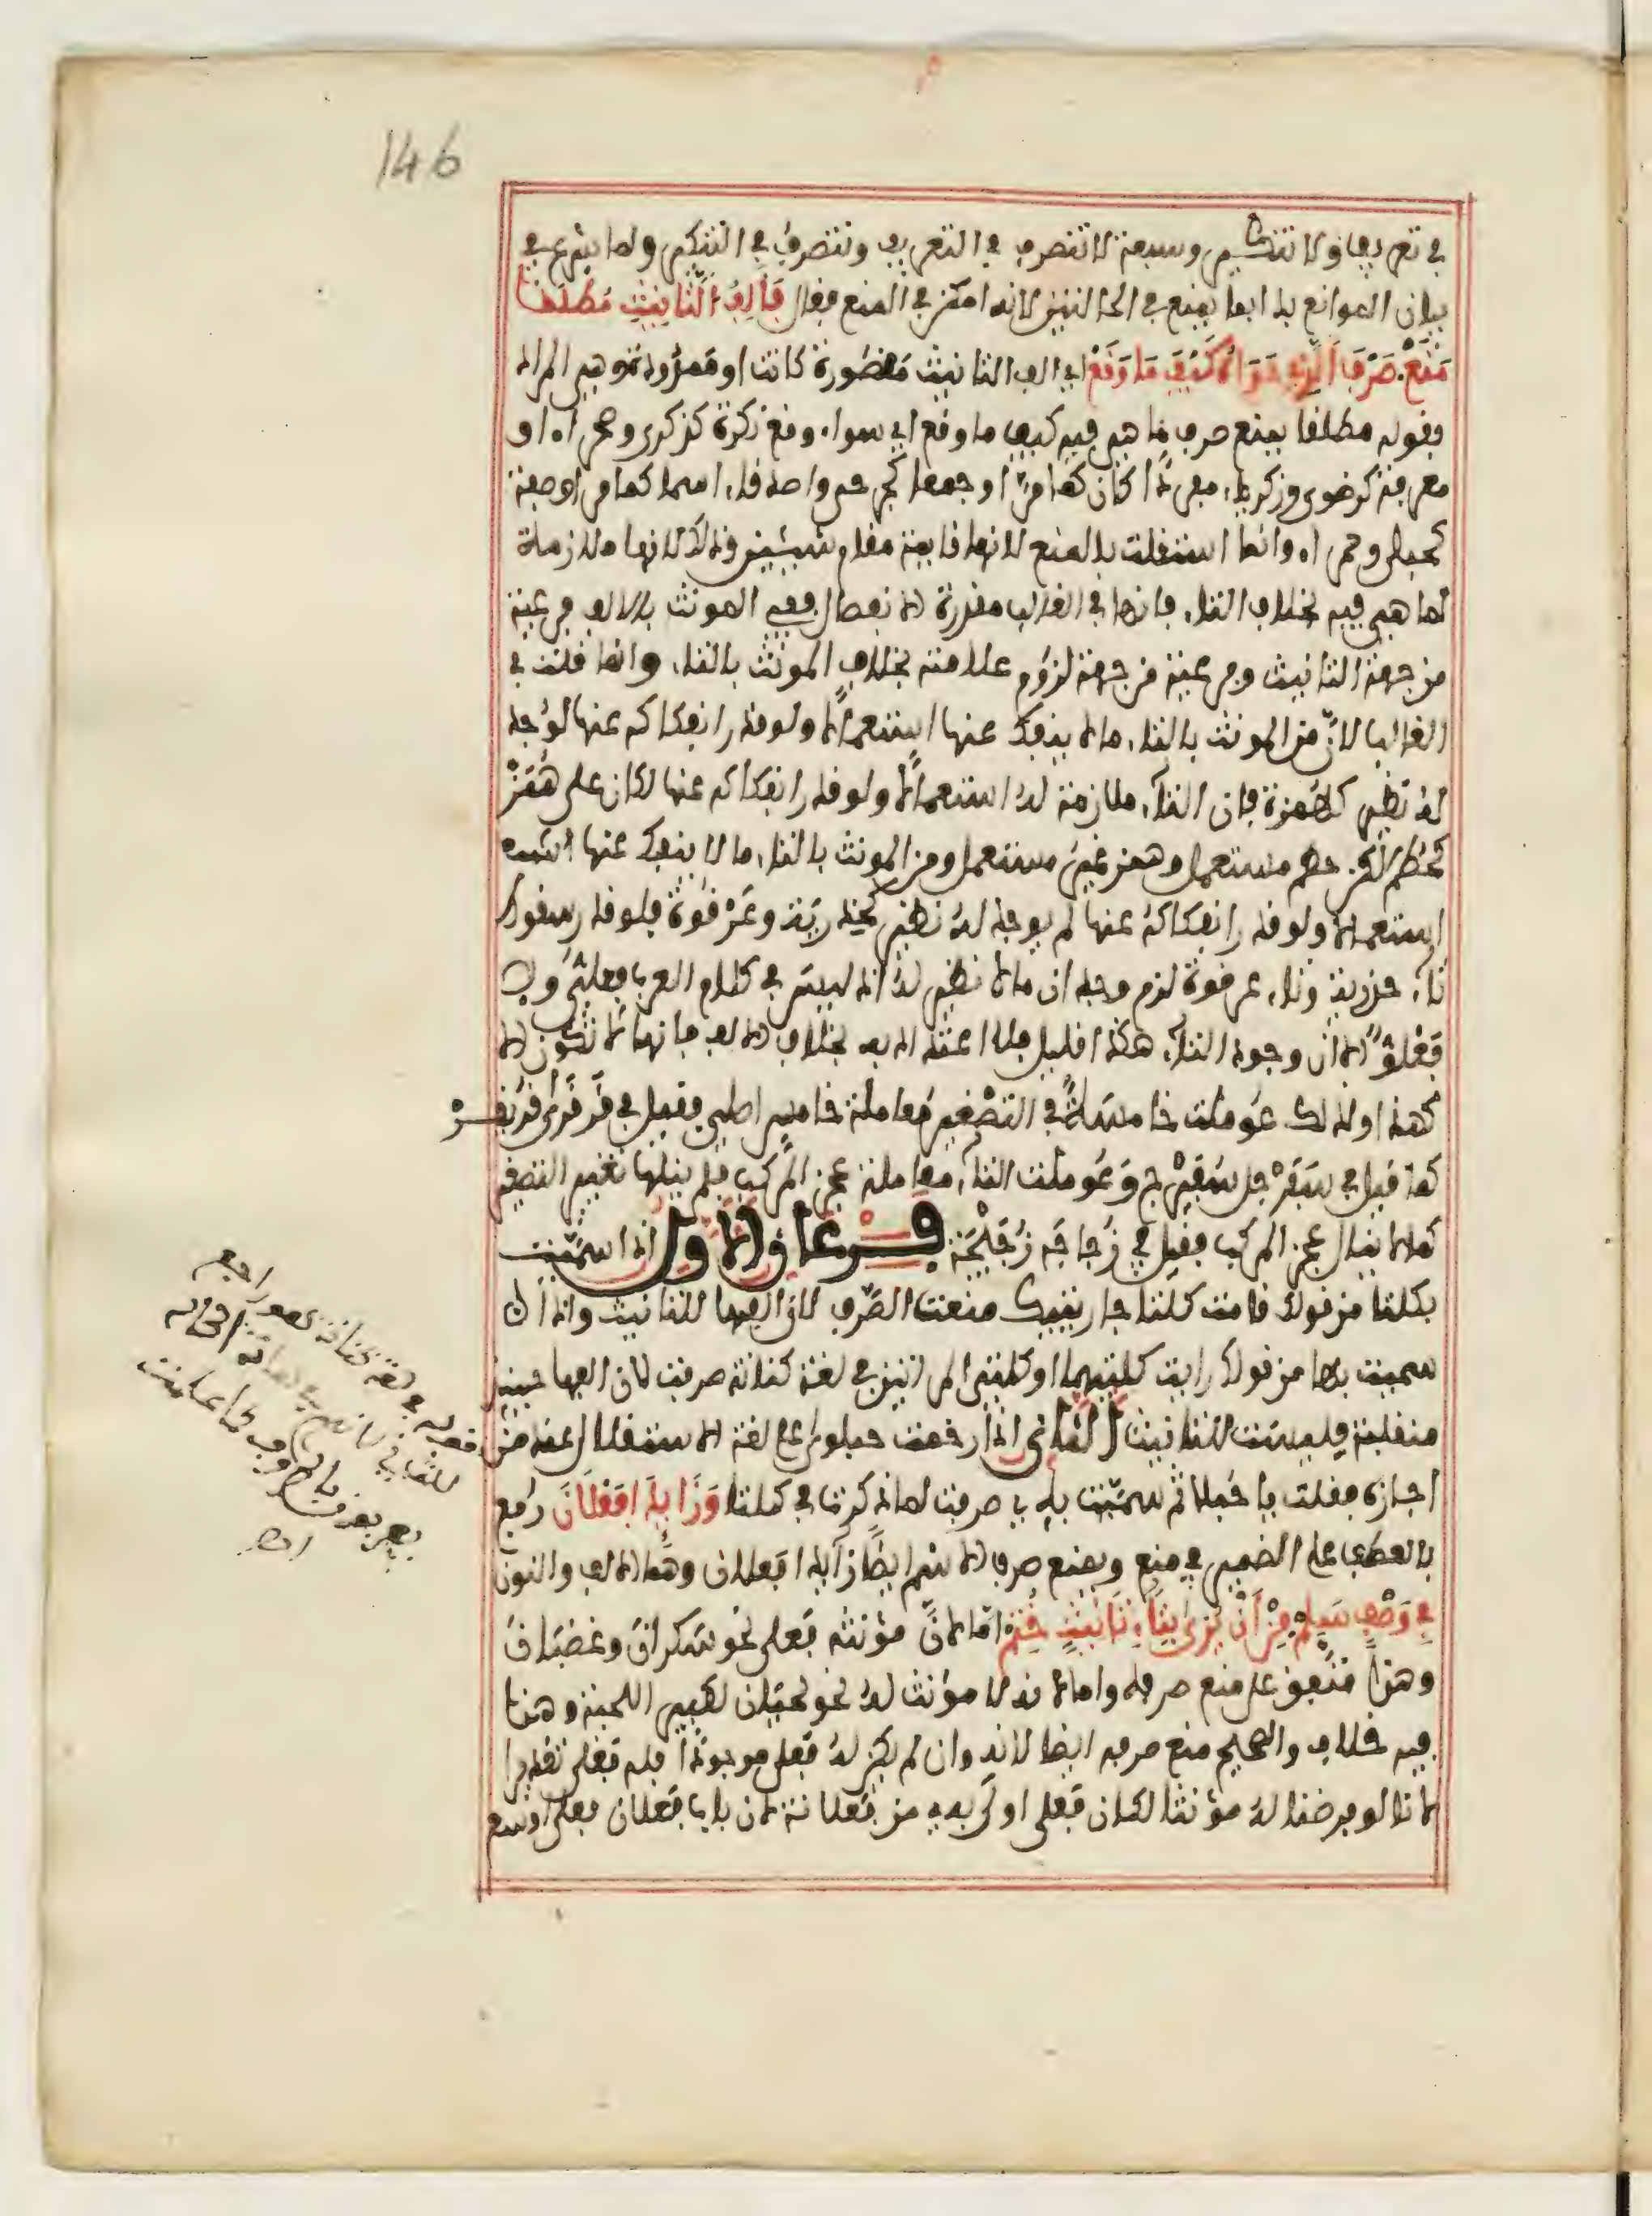 146
في تعريف ولا تنكير وسبعة لا تنصرف في التعريف وتنصرف في التنكير ولما شرع في
بيان الموانع بدا بما يمنع في الحالتين لانه امكن في المنع فقال فَأَلِفُ التَّأنِيثِ مُطْلَقًا
مَنَعْ. صَرْفَ الَّذِي حَوَاهُ كَيْفَ مَا وَقَعْ اي الف التانيث مقصورة كانت او ممدودة وهي المراد
بقوله مطلقا يمنع صرف ما هي فيه كيف ما وقع اي سواء وقع نكرة كذكرى وصحراء او
معرفة كرضوى وزكرياء مفردا كان كما مرّ او جمعا كجرحى واصدقاء اسما كما مر او صفة
كحبلى وحمراء وانما استقلت بالمنع لانها قايمة مقام شيئين وذلك لانها ملازمة
لما هي فيه بخلاف التاء فانها في الغالب مقدرة الانفصال ففي المونث بالالف فرعية
من جهة التانيث وفرعية من جهة لزوم علامته بخلاف المونث بالتاء وانما قلت في
الغالب لانّ من المونث بالتاء ما لا ينفك عنها استعمالًا ولو قدر انفكاكه عنها لوُجد
لهُ نظير كهُمَزة فان التاء ملازمة لهُ استعمالًا ولو قدر انفكاكه عنها لكان على هُمَزْ
كحُطَم لكن حطم مستعمل وهمز غير مستعمل ومن المونث بالتاء ما لا ينفك عنها
استعمالا ولو قدر انفكاكهُ عنها لم يوجد لهُ نظير كحِذرية وعَرْقُوَة فلو قدر سقوط
تاء حذرية وتاء عرقوة لزم وجدان ما لا نظير لهُ اذ ليس في كلام العرب فعلِيٌ ولا
فَعْلُوٌ الا ان وجود التاء هكذا قليل فلا اعتداد به بخلاف الالف فانها لا تكون الا
هكذا ولذلك عُوملت خامسةً في التصْغير مُعاملة خامس اصلي فقيل في قَرقَرى قُرَيقِرْ
كما قيل في سَفَرْجل سُفَيْرِج وَعُوملت التاء معاملة عجز المركب فلم ينلها تغيير التصغير
كما لا ينال عجز المركب فقيل في زُجاجَة زُجَيْجَة فــرعان الاول اذا سمّيت
بكلتا من قولك قامت كلتا جاريتيك منعت الصّرف لانّ الفها للتانيث واذا
سميت بها من قولك رايت كلتيهما او كلتي المراتين في لغة كنانة صرفت لان الفها حينئذ
منقلبة فليست للتانيث الثاني اذا رخمت حبلوي على لغة الاستقلال عند من
اجازه فقلت يا حُبلا ثم سمّيت به صرفت لما ذكرنا في كلتا وَزَائِدَا فَعْلَانَ رُفع
بالعطف على الضمير في منع ويمنع صرف الاسم ايضًا زايدا فعلان وهُما الالف والنون
في وَصْفٍ سَلِمْ مِنْ اَنْ يُرَى بِتَاءِ تَأنِيثٍ خُتِمْ امّا لانّ مؤنثه فَعلى نحو سَكران وغضبان
وهذا متّفق على منع صرفه واما لانه لا مؤنث لهُ نحو لحيان لكبير اللحية وهذا
فيه خلاف والصحيح منع صرفه ايضا لانه وان لم يكن لهُ فعلى موجودًا فله فعلى تقديرا
لانا لو فرضنا لهُ مؤنثا لكان فَعلى اولى به من فعلانة لان باب فَعلان فعلى اوسع
قوله في لغة كنانة